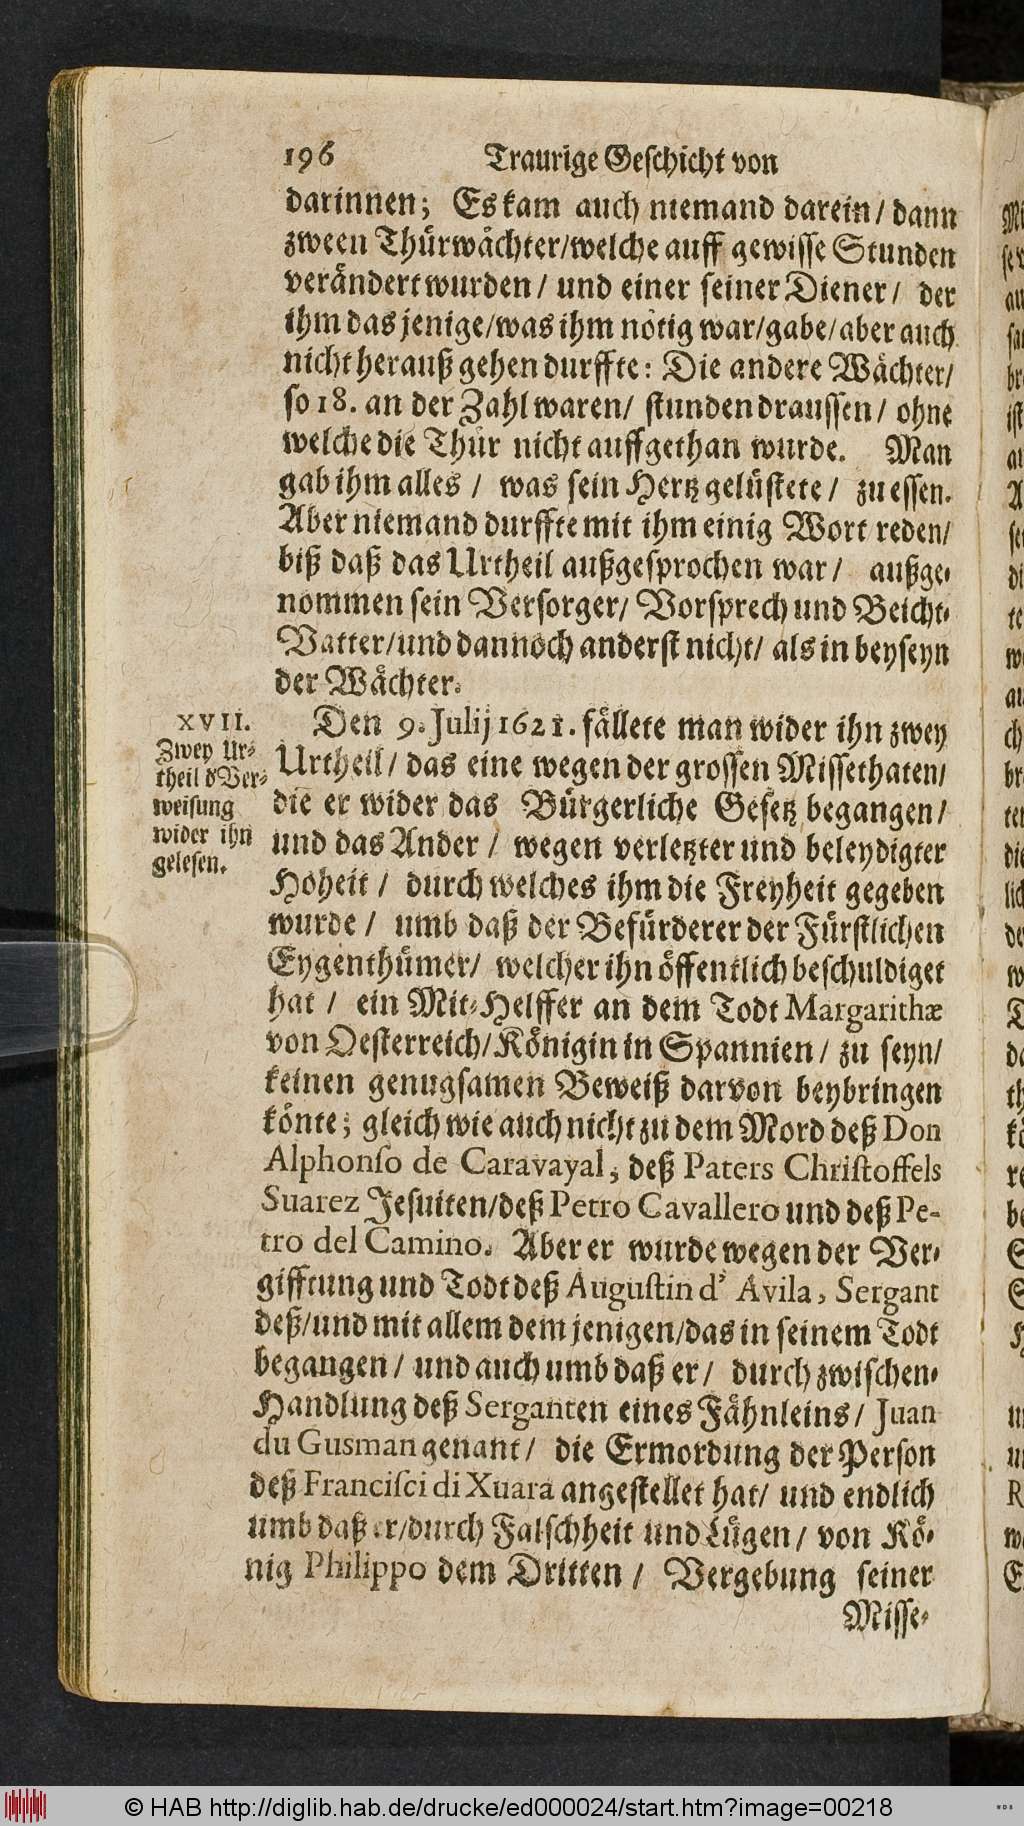 196 Traurige Geschicht von
darinnen; Es kam auch niemand darein/ dann
zween Thürwächter/welche auff gewisse Stunden
verändert wurden/ und einer seiner Diener/ der
ihm das jenige/was ihm nötig war/gabe/aber auch
nicht herauß gehen durffte: Die andere Wächter/
so 18. an der Zahl waren/ stunden draussen/ ohne
welche die Thür nicht auffgethan wurde. Man
gab ihm alles / was sein Hertz gelüstete/ zu essen.
Aber niemand durffte mit ihm einig Wort reden/
biß daß das Urtheil außgesprochen war/ außge-
nommen sein Versorger/ Vorsprech und Beicht-
Vatter/und dannoch anderst nicht/ als in beyseyn
der Wächter.
XVII.
Zwey Ur-
theil d Ver-
weisung
wider ihn
gelesen.
Den 9. Julij 1621. fällete man wider ihn zwey
Urtheil/ das eine wegen der grossen Missethaten/
die er wider das Bürgerliche Gesetz begangen/
und das Ander / wegen verletzter und beleydigter
Hoheit / durch welches ihm die Freyheit gegeben
wurde / umb daß der Befürderer der Fürstlichen
Eygenthümer/ welcher ihn öffentlich beschuldiget
hat / ein Mit-Helffer an dem Todt Margarithæ
von Oesterreich/Königin in Spannien / zu seyn/
keinen genugsamen Beweiß darvon beybringen
könte; gleich wie auch nicht zu dem Mord deß Don
Alphonso de Caravayal, deß Paters Christoffels
Suarez Jesuiten/deß Petro Cavallero und deß Pe-
tro del Camino. Aber er wurde wegen der Ver-
gifftung und Todt deß Augustin d' Avila, Sergant
deß/und mit allem dem jenigen/das in seinem Todt
begangen / und auch umb daß er / durch zwischen-
Handlung deß Serganten eines Fähnleins / Juan
du Gusman genant / die Ermordung der Person
deß Francisci di Xuara angestellet hat/ und endlich
umb daß er/durch Falschheit und Lügen / von Kö-
nig Philippo dem Dritten / Vergebung seiner
Misse-
© HAB http://diglib.hab.de/drucke/ed000024/start.htm?image=00218